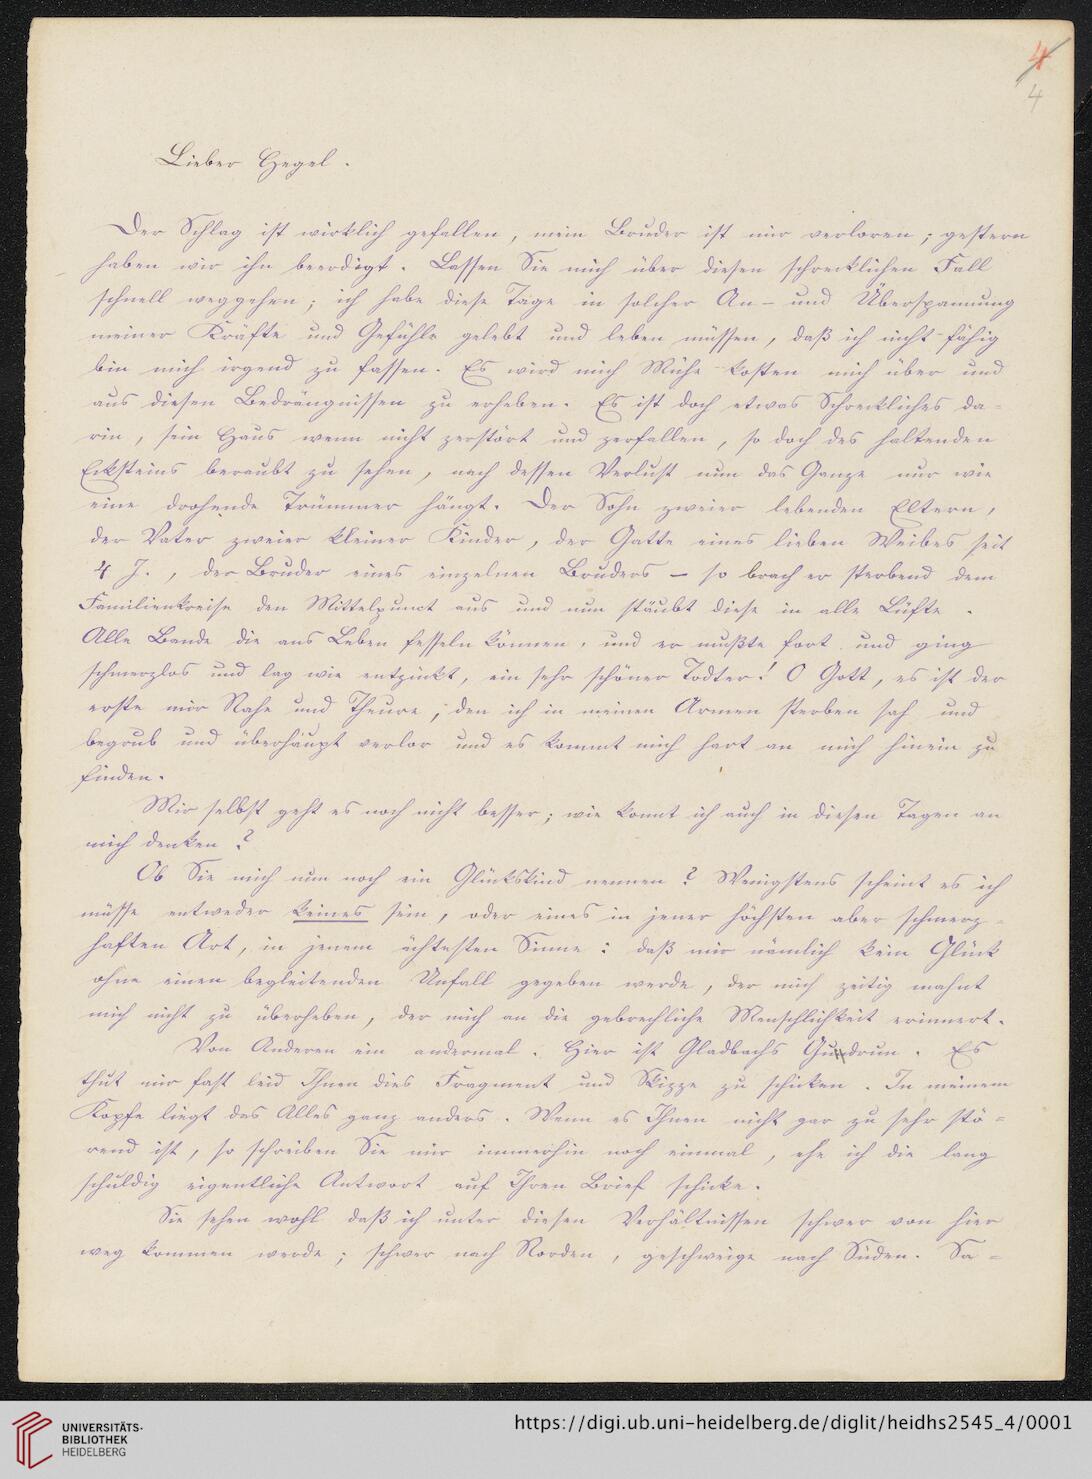 4
4
Lieber Hegel.
Der Schlag ist wirklich gefallen, mein Bruder ist mir verloren; gestern
haben wir ihn beerdigt. Lassen Sie mich über diesen schrecklichen Fall
schnell weggehen; ich habe diese Tage in solcher An- und Überspannung
meiner Kräfte und Gefühle gelebt und leben müssen, daß ich nicht fähig
bin mich irgend zu fassen. Es wird mich Mühe kosten mich über und
aus diesen Bedrängnissen zu erheben. Es ist doch etwas Schreckliches da=
rin, sein Haus wenn nicht zerstört und zerfallen, so doch des haltenden
Ecksteins beraubt zu sehen, nach dessen Verlust nun das Ganze nur wie
eine drohende Trümmer hängt. Der Sohn zweier lebenden Eltern,
der Vater zweier kleiner Kinder, der Gatte eines lieben Weibes seit
4 J., der Bruder eines einzelnen Bruders – so brach er sterbend dem
Familienkreise den Mittelpunct aus und nun stäubt diese in alle Lüfte.
Alle Bande die ans Leben fesseln können, und er mußte fort und ging
schmerzlos und lag wie entzückt, ein sehr schöner Todter! O Gott, es ist der
erste mir Nahe und Theure, den ich in meinen Armen sterben sah und
begrub und überhaupt verlor und es kommt mich hart an mich hinein zu
finden.
Mir selbst geht es noch nicht besser; wie konnt ich auch in diesen Tagen an
mich denken?
Ob Sie mich nun noch ein Glückskind nennen? Wenigstens scheint es ich
müsse entweder keines sein, oder eines in jener höchsten aber schmerz=
haften Art, in jenem ächtesten Sinne: daß mir nämlich kein Glück
ohne einen begleitenden Unfall gegeben werde, der mich zeitig mahnt
mich nicht zu überheben, der mich an die gebrechliche Menschlichkeit erinnert.
Von Anderen ein andermal. Hier ist Gladbachs Gudrun. Es
thut mir fast leid Ihnen dies Fragment und Skizze zu schicken. In meinem
Kopfe liegt das Alles ganz anders. Wenn es Ihnen nicht gar zu sehr stö=
rend ist, so schreiben Sie mir immerhin noch einmal, ehe ich die lang
schuldig eigentliche Antwort auf Ihren Brief schicke.
Sie sehen wohl daß ich unter diesen Verhältnissen schwer von hier
weg kommen werde; schwer nach Norden, geschweige nach Süden. Sa=
UNIVERSITÄTS-
BIBLIOTHEK
HEIDELBERG
https://digi.ub.uni-heidelberg.de/diglit/heidhs2545_4/0001